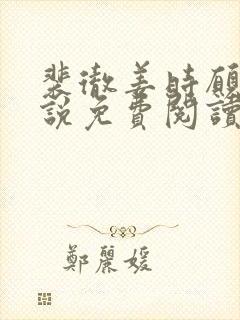 裴徹姜時願
說免費閱讀
鄭麗媛